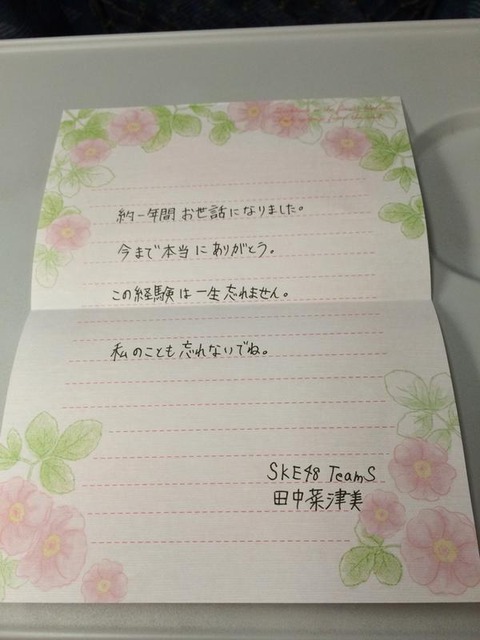 約一年間お世話になりました。
今まで本当にありがとう。
この経験は一生忘れません。
私のことも忘れないでね。
SKE48 TeamS
田中菜津美